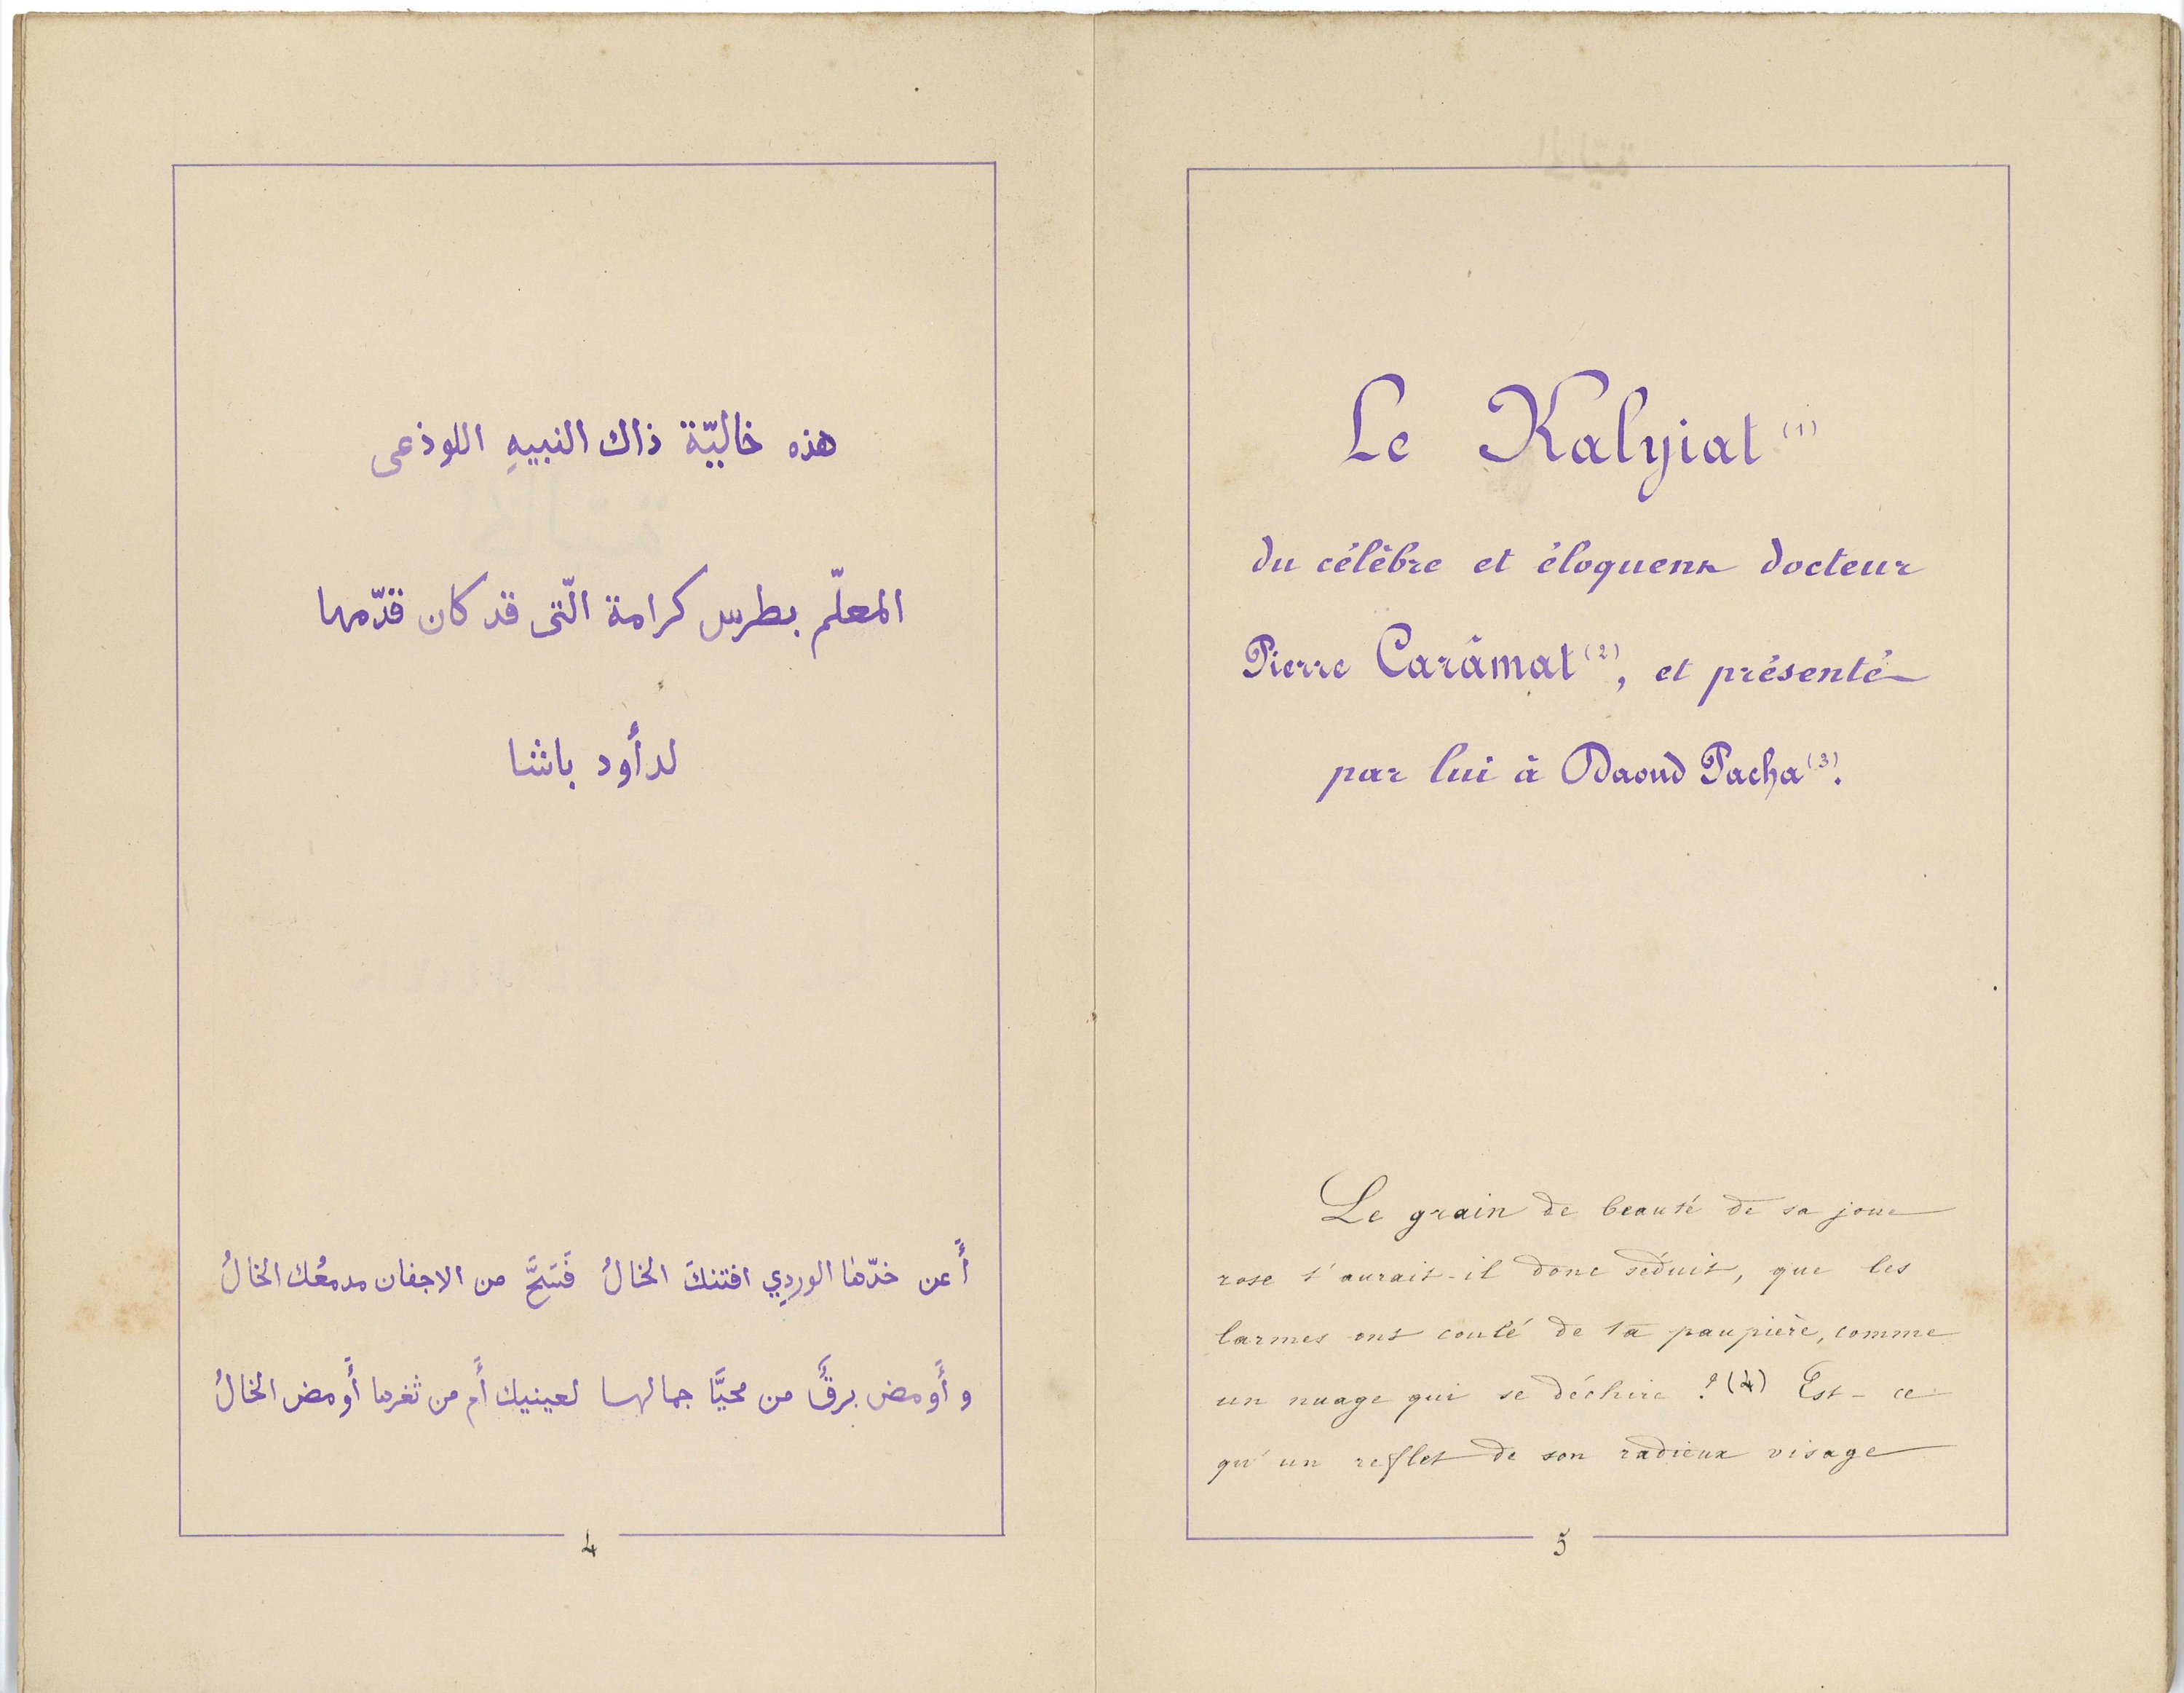 هذه خاليّة ذاك النبيهِ اللوذعى
المعلّم بطرس كرامة الّتى قد كان قدّمها
لدأود باشا
أَعن خدّها الوردِي افتنكَ الخالُ فَسَحَّ من الاجفان مدمعُك الخالُ
و أَومض برقٌ من محيَّا جمالها لعينيك أَم من ثغرها أَومض الخالُ
4
Le Kalyiat (1)
du célèbre et éloquent docteur
Pierre Carâmat (2), et présenté
par lui à Daoud Pacha (3).
Le grain de beauté de sa joue
rose t'aurait-il donc séduit, que les
larmes ont coulé de ta paupière, comme
un nuage qui se déchire ? (4) Est-ce
qu'un reflet de son radieux visage
5